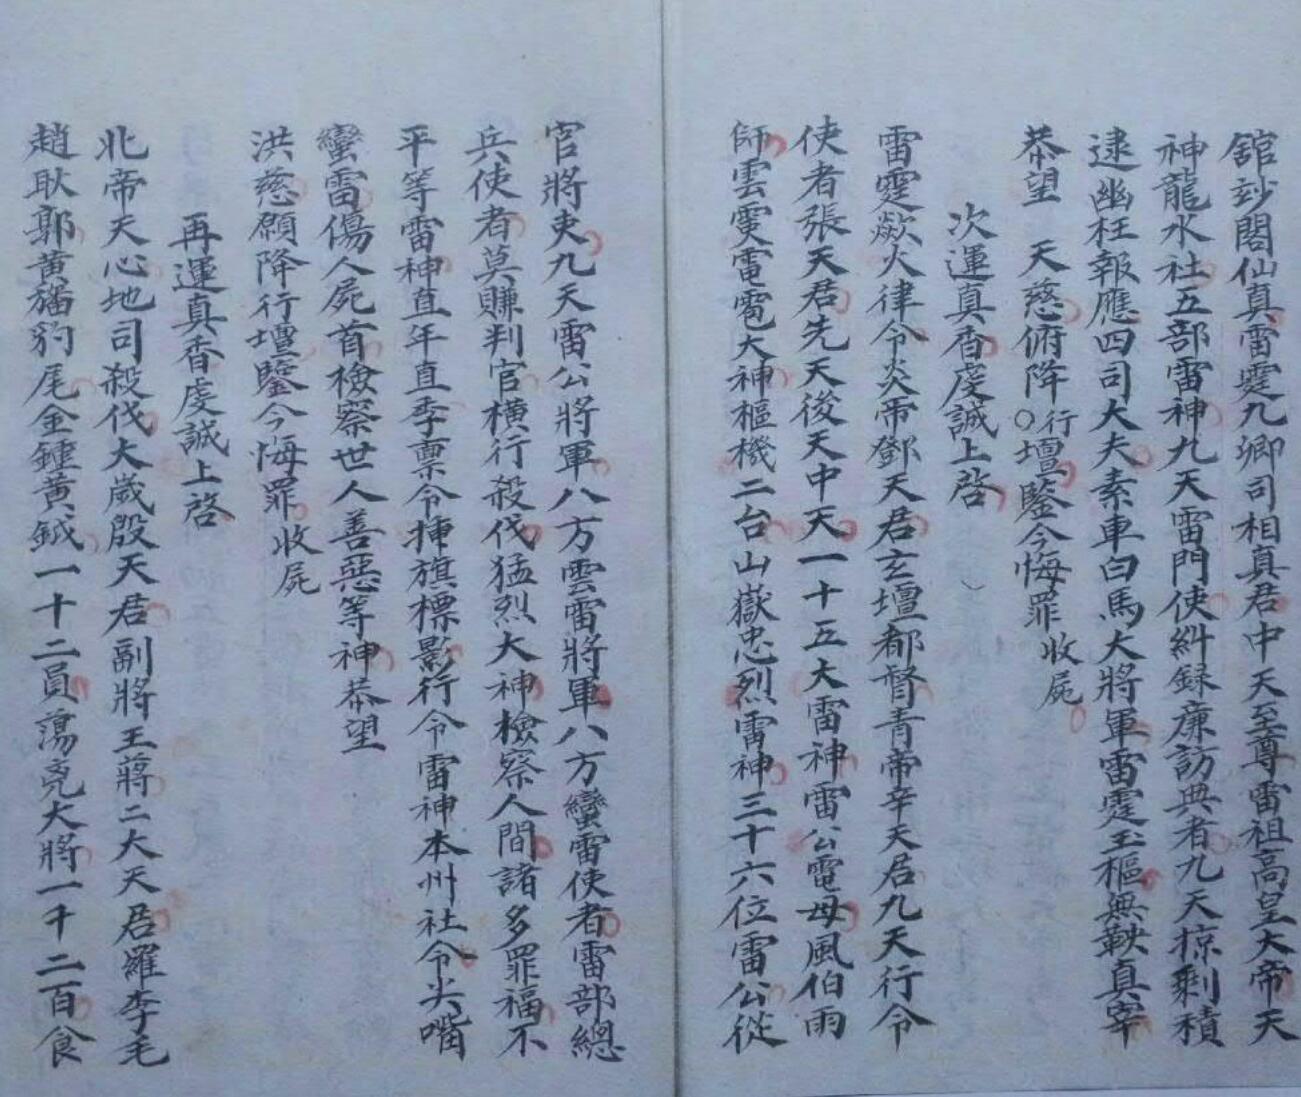 舘玅閣仙真雷霆九卿司相真君中天至尊雷祖高皇大帝天
神龍水社五部雷神九天雷門使糾録廉訪典者九天掠剩積
逮幽枉報應四司大夫素車白馬大將軍雷霆玉樞無鞅真宰
恭望　天慈俯降〇行壇鑒今悔罪　收屍
次運真香虔誠上啓
雷霆歘火律令炎帝鄧天君玄壇都督青帝辛天君九天行令
使者張天君先天後天中天一十五大雷神雷公電母風伯雨
師雲雯電雹大神樞機二台山嶽忠烈雷神三十六位雷公從
官將吏九天雷公將軍八方雲雷將軍八方蠻雷使者雷部總
兵使者莫賺判官橫行殺伐猛烈大神檢察人間諸多罪福不
平等雷神直年直季禀令揷旗標影行令雷神本州社令尖嘴
蠻雷傷人屍首檢察世人善惡等神恭望
洪慈願降行壇鑒今悔罪　收屍
再運真香虔誠上啓
北帝天心地司殺伐大嵗殷天君副將王蔣二大天君羅李毛
趙耿郭黃旛豹尾金鍾黃鉞一十二員蕩兇大將一千二百食